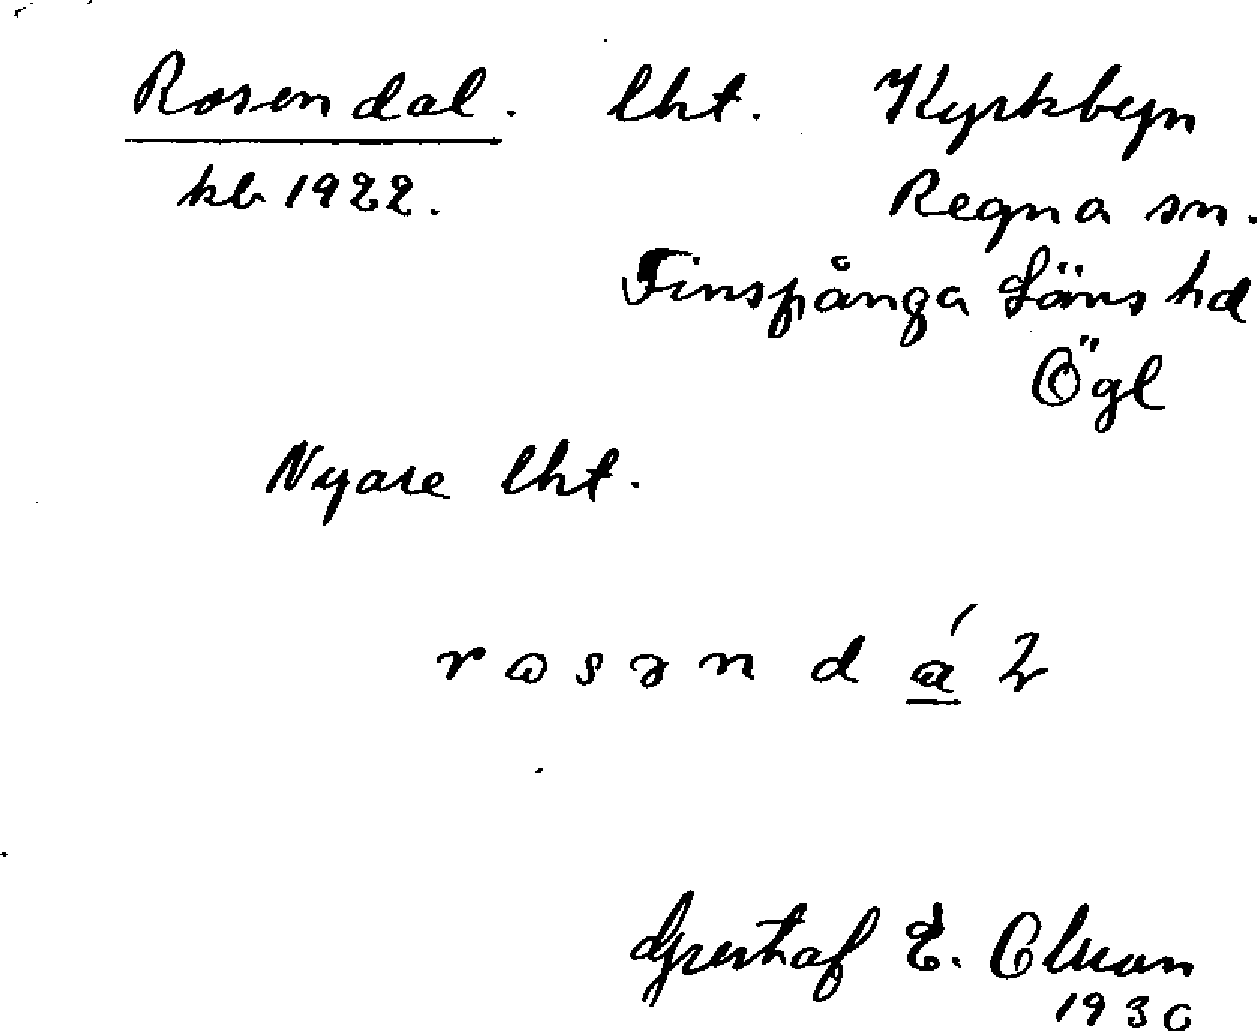 Rosendal. lht. Kyrkbyn
kb 1922. Regna sn.
Finspånga Läns hd
Ögl
Nyare lht.
rɷsən dá
Gustaf E.
1930